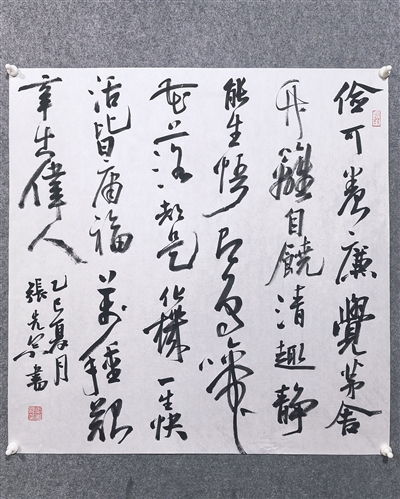 儉可養廉覺茅舍
竹籬自饒清趣靜
能生悟即鳥啼
花落都是化機一生快
活皆庸福萬種艱
辛出偉人
乙巳夏月
張先書